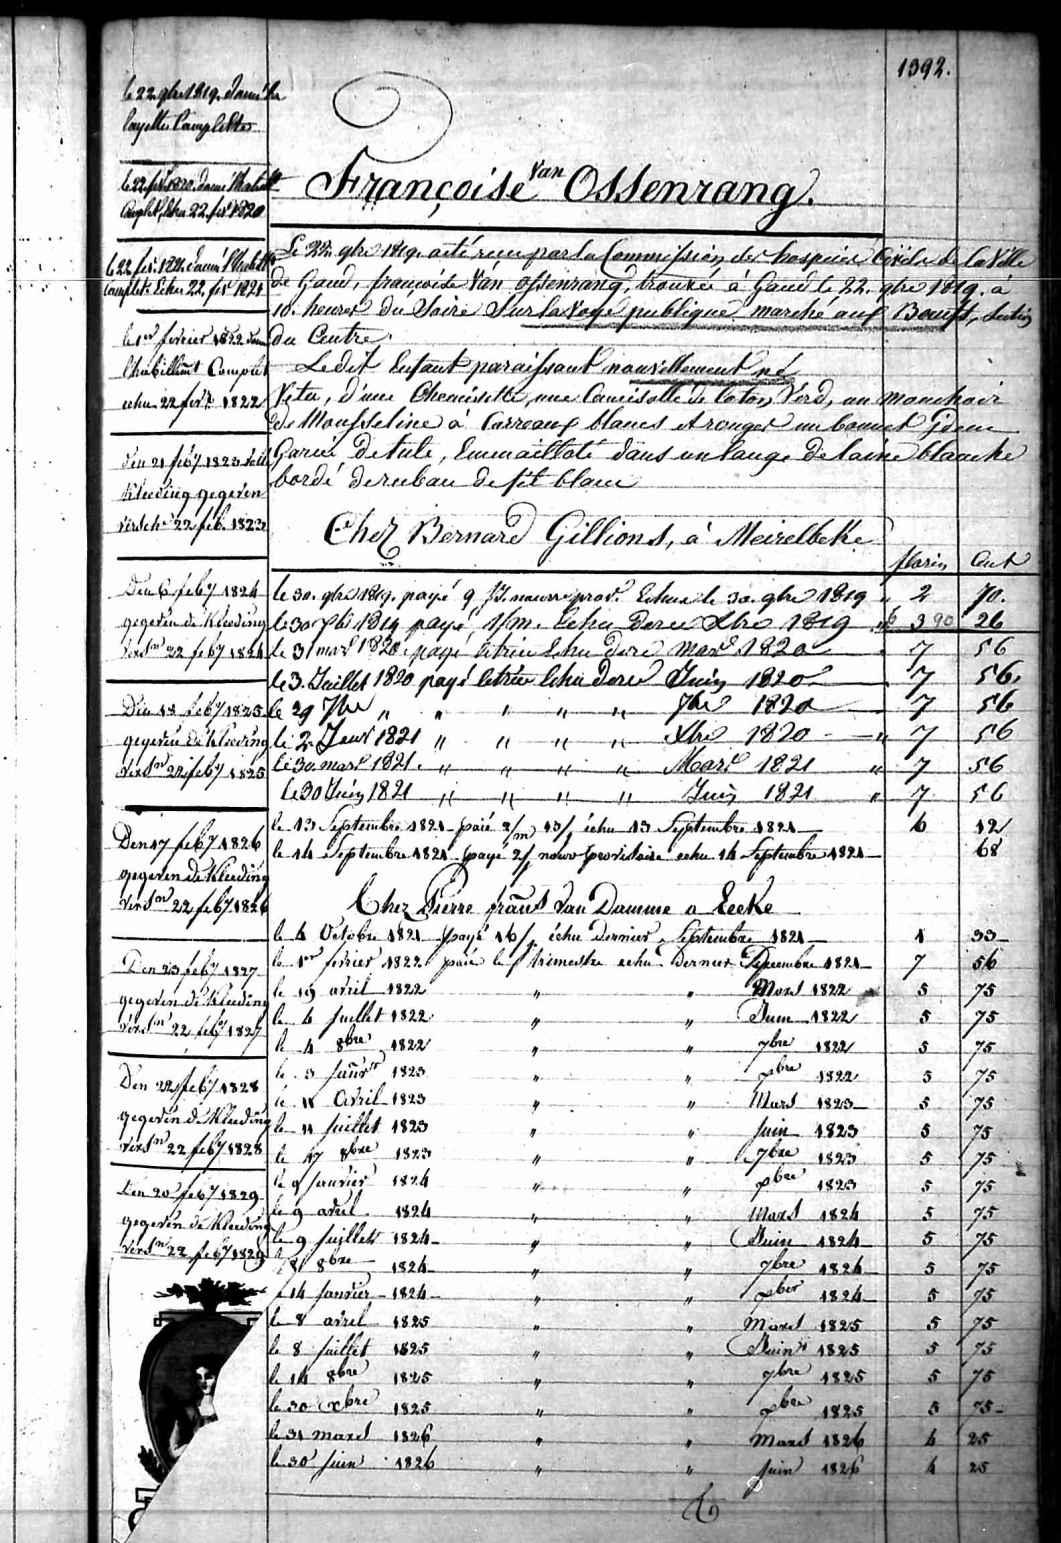 1392.
le 22 9bre 1819. donné la
layette Complette
le 22 fevr 1820. donné
Complet, échu 22. fevr 1820
le 22 fevr. 1821. donné
Complet. Echu 22. fevr 1821
le 1er février 1822 donné
l'habillemt Complet
echu 22 fevr. 1822
Den 21 feby 1823
Kleeding gegeven
versch. 22 feb. 1823
Den 6 feby 1824
gegeven de Kleeding
versn 22 feby 1824
Den 18 feby 1825
gegeven de Kleeding
versn 22 feby 1825
Den 17 feby 1826
gegeven de Kleeding
versn 22 feby 1826
Den 23 feby 1827
gegeven de Kleeding
versn 22 feby 1827
Den 22 feby 1828
gegeven de Kleeding
versn 22 feby 1828
Den 20 feby 1829
gegeven de Kleeding
versn 22 feby 1829
Françoise Van Ossenrang.
Le 22. 9bre 1819. a été reçu par la Commission des hospices Civils de la Ville
de Gand, françoise Van Ossenrang, trouvée à Gand le 22. 9bre 1819. a
10. heures du Soire Sur la voye publique marché aux Boeufs, Section
du Centre.
Ledit Enfant paraissant nouvellement né
Vetu, d'une Chemisette, une Camisolle de Coton Verd, un mouchoir
de Mousseline à Carreaux blancs et rouges un bonnet idem
Garni de tule, Emmailloté dans un lange de laine blanche
bordé de ruban de fil blanc
Chez Bernard Gillions, à Meirelbeke
florin Cent
le 30. 9bre 1819. payé 9 Js. nourr. prov. Echus le 30. 9bre 1819 " 2 70.
le 30 1819 payé, 1/m. Echu dernier Xbre 1819 " 26
le 31 mars 1820. payé Echu der Mars 1820 7 56
le 3. Juillet 1820 payé Echu der Juin 1820 7 56.
le 29 7bre " " " " " 7bre 1820 7 56
le 2 Janv 1821 " " " " Xbre 1820 " 7 56
le 30 mars 1821. " " " " Mars 1821 " 7 56
le 30 Juin 1821 " " " " Juin 1821 " 7 56
le 13 Septembre 1821 paié 2/m 13/j échu 13 Septembre 1821 6 12
le 14 Septembre 1821 payé 2/j nourr provisoire echu 14 Septembre 1821 68
Chez Pierre frans Van Damme a Eecke
le 4 Octobre 1821 payé 16/j échu dernier Septembre 1821 1 33
le 1er février 1822 paié le trimestre echu dernier Decembre 1821 7 56
le 19 avril 1822 " " Mars 1822 5 75
le 4 Juillet 1822 " " Juin 1822 5 75
le 4 8bre 1822 " " 7bre 1822 5 75
le 3 Janvr 1823 " " xbre 1822 5 75
le 11 Avril 1823 " " Mars 1823 5 75
le 11 Juillet 1823 " " Juin 1823 5 75
le 17 8bre 1823 " " 7bre 1823 5 75
le 9 Janvier 1824 " " xbre 1823 5 75
le 9 avril 1824 " " Mars 1824 5 75
le 9 Juillet 1824 " " Juin 1824 5 75
le 8 8bre 1824 " " 7bre 1824 5 75
le 14 Janvier 1824 " " xbre 1824 5 75
le 8 avril 1825 " " Mars 1825 5 75
le 8 Juillet 1825 " " Juin 1825 5 75
le 14 8bre 1825 " " 7bre 1825 5 75
le 30 xbre 1825 " " xbre 1825 5 75
le 31 mars 1826 " " Mars 1826 4 25
le 30 Juin 1826 " " Juin 1826 4 25